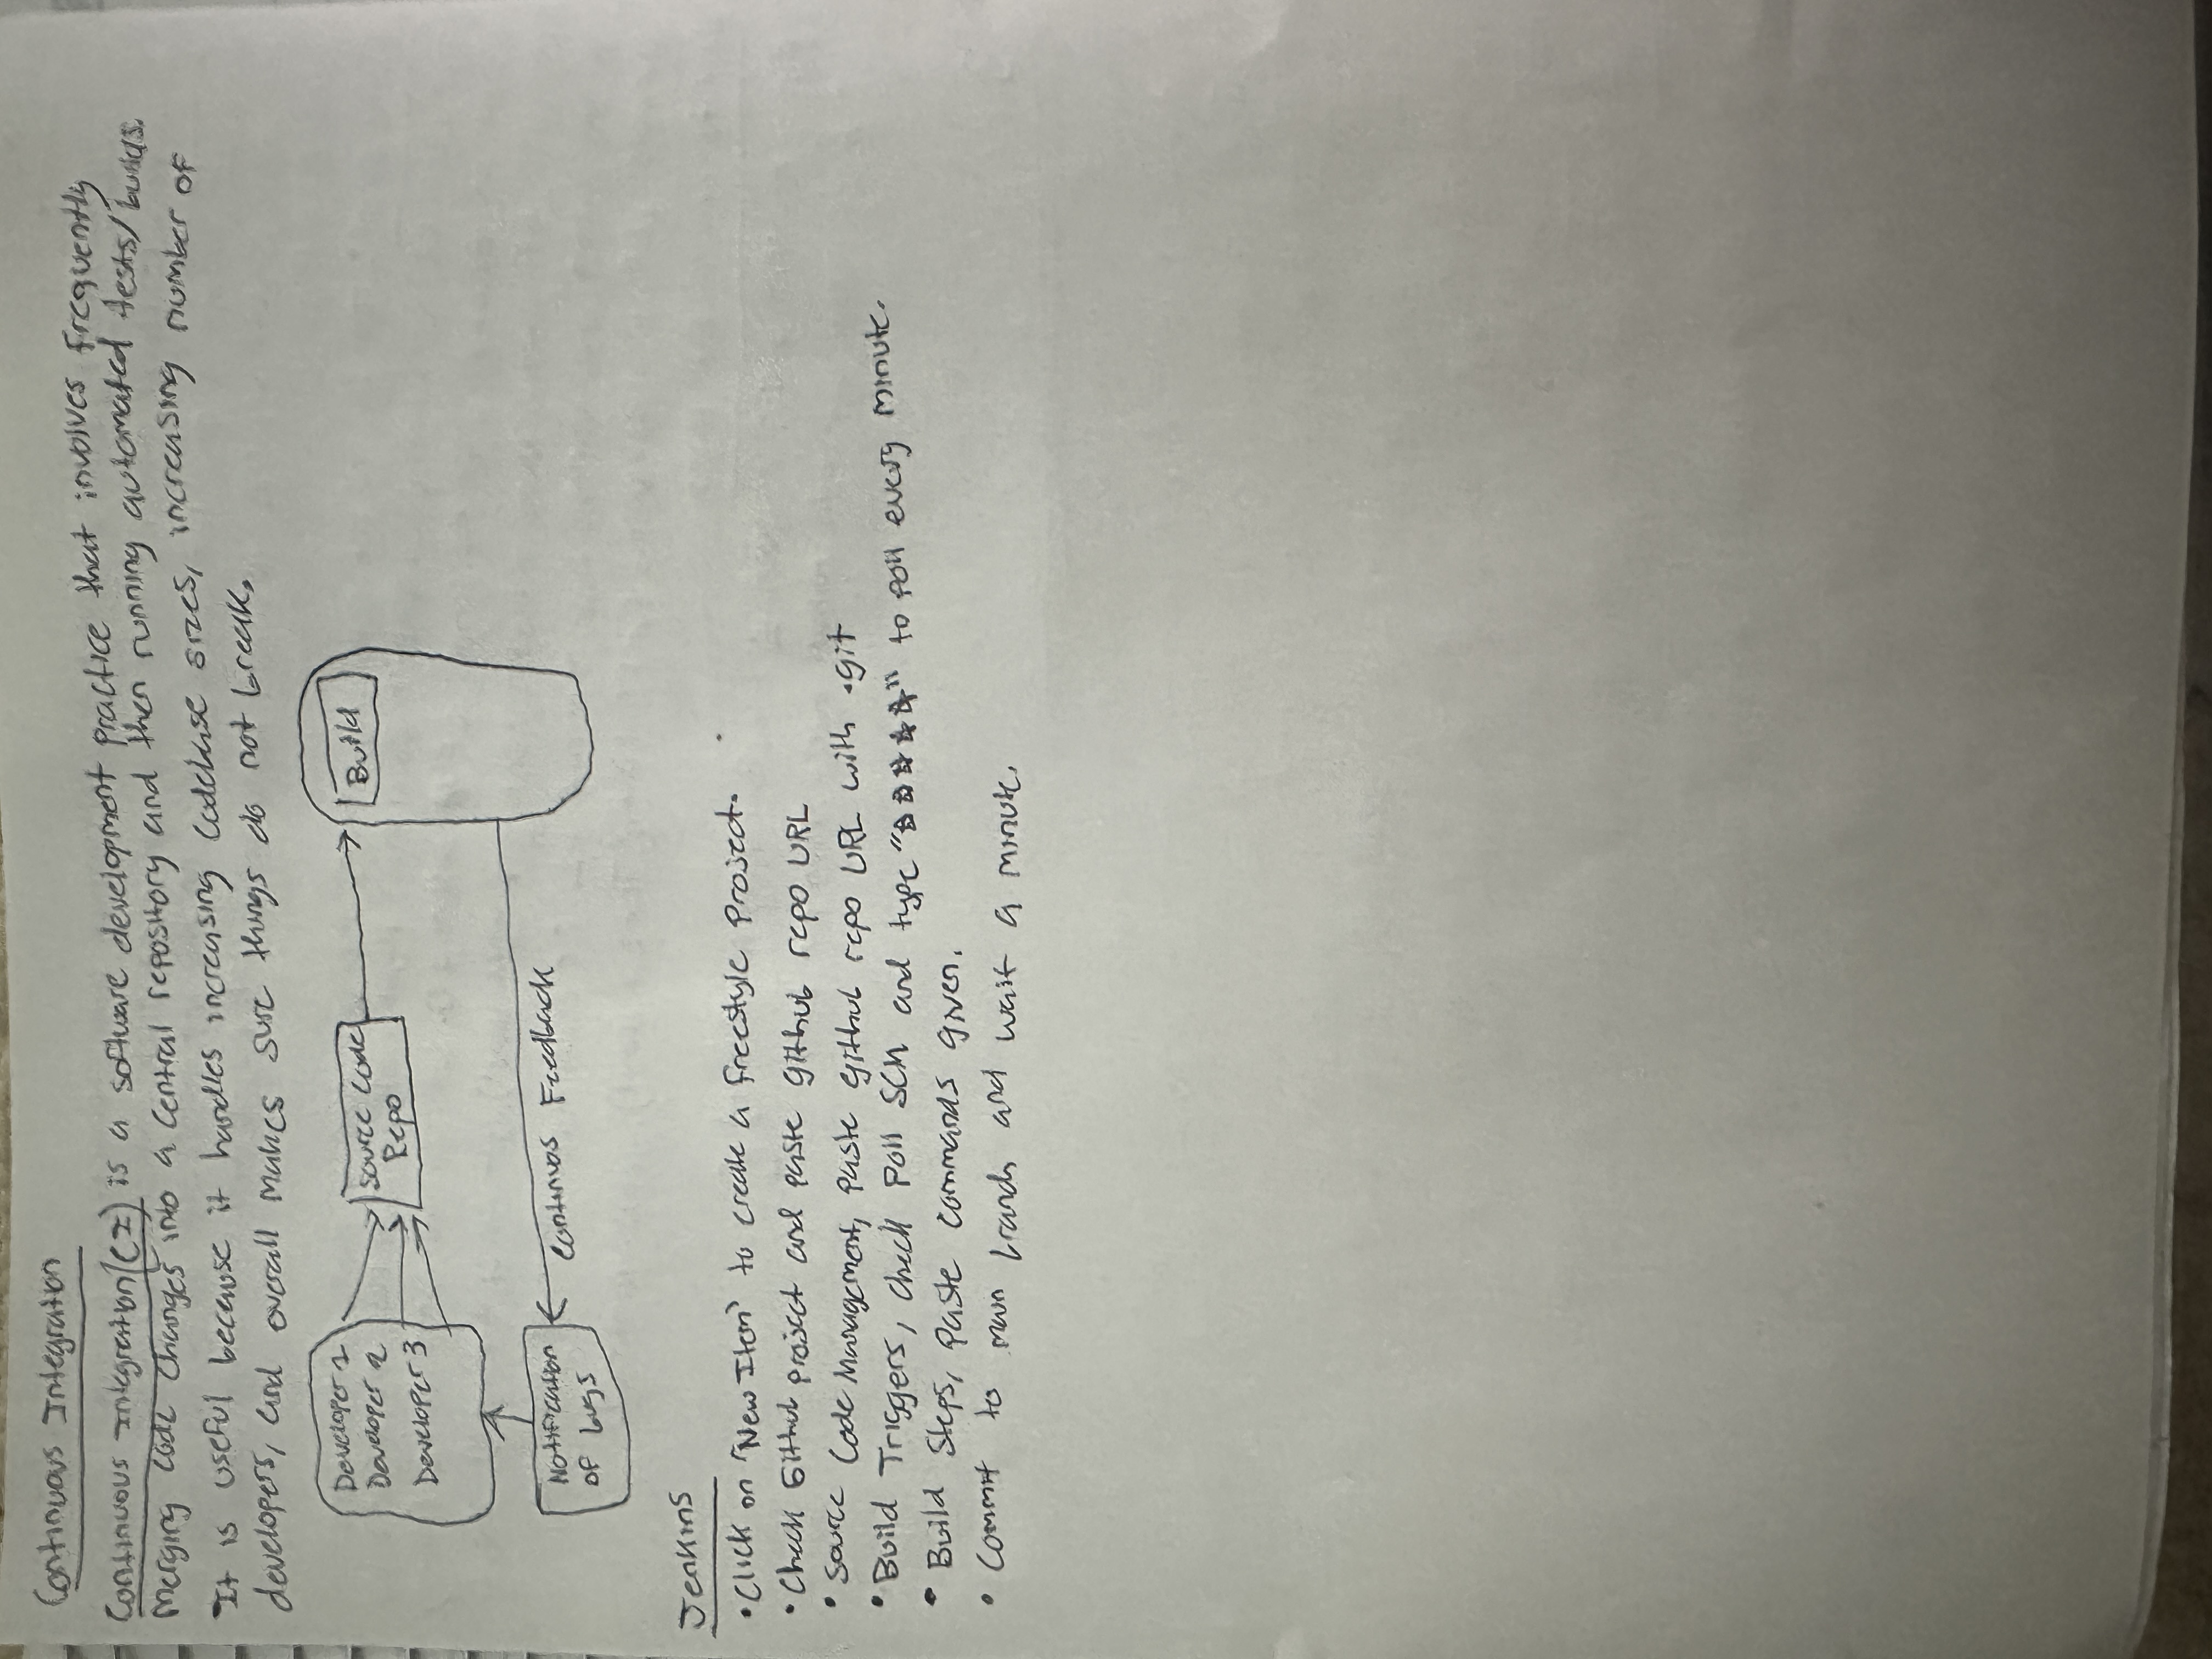 Continuous Integration
Continuous Integration (CI) is a software development practice that involves frequently
merging code changes into a central repository and then running automated tests/builds.
It is useful because it handles increasing codebase sizes, increasing number of
developers, and overall makes sure things do not break.
Developer 1
Developer 2
Developer 3
Source Code
Repo
Build
Notification
of bugs
Continuos Feedback
Jenkins
• Click on "New Item" to create a freestyle project.
• Check Github project and paste github repo URL
• Source Code Management, paste github repo URL with .git
• Build Triggers, check Poll SCM and type "* * * * *" to poll every minute.
• Build Steps, paste commands given.
• Commit to main branch and wait a minute.